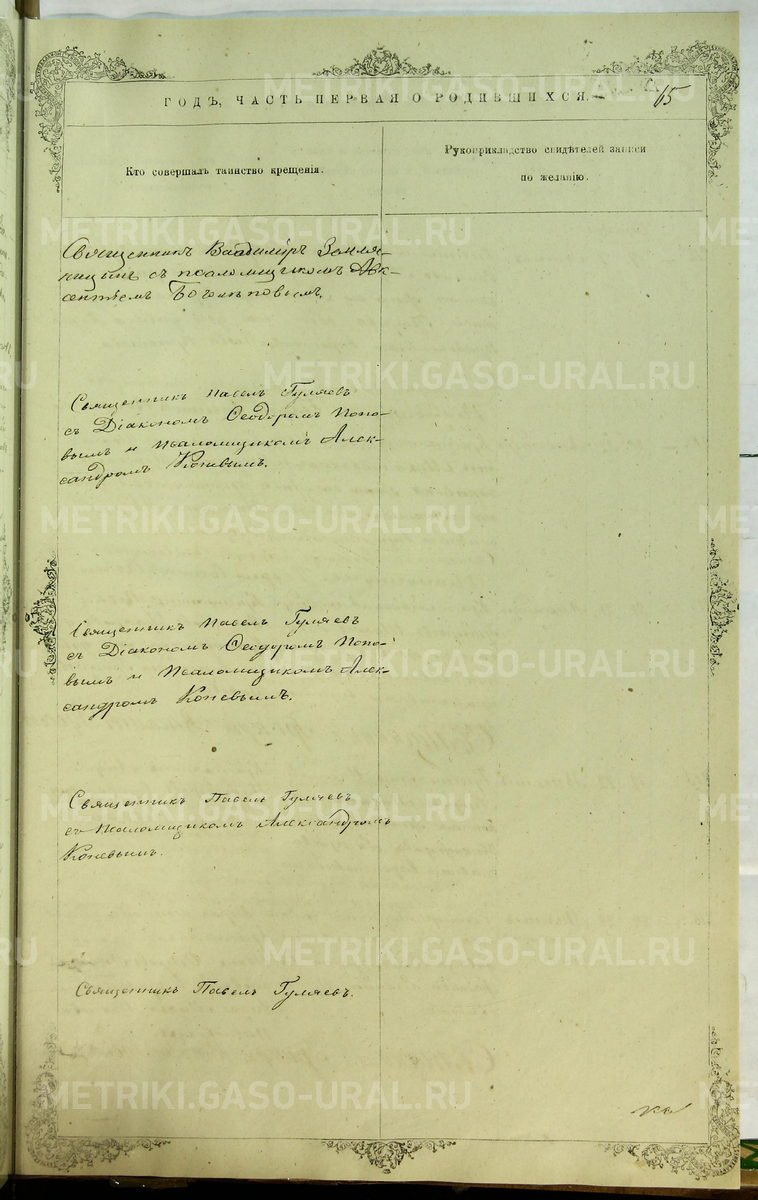 ГОДЪ, ЧАСТЬ ПЕРВАЯ О РОДИВШИХСЯ.
65
Кто совершалъ таинство крещенія.
Рукоприкладство свидѣтелей записи
по желанію.
Священникъ Владиміръ Земля-
ницынъ съ псаломщикомъ Ав-
ксентіемъ
Священникъ Павелъ Гуляевъ
съ Діакономъ Ѳеодоромъ Попо-
вымъ и Псаломщикомъ Алек-
сандромъ Коневымъ.
Священникъ Павелъ Гуляевъ
съ Діакономъ Ѳеодоромъ Попо-
вымъ и Псаломщикомъ Алек-
сандромъ Коневымъ.
Священникъ Павелъ Гуляевъ
съ Псаломщикомъ Александромъ
Коневымъ.
Священникъ Павелъ Гуляевъ.
METRIKI.GASO-URAL.RU